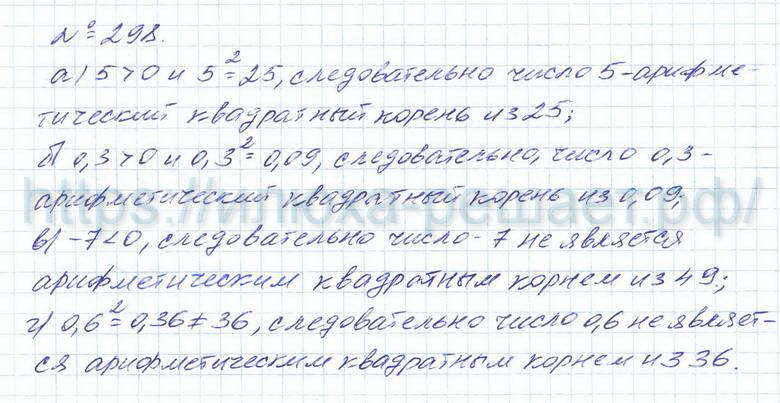 № 298.
а) 5>0 и 5²=25, следовательно число 5-арифме-
тический квадратный корень из 25;
б) 0,3>0 и 0,3²=0,09, следовательно, число 0,3-
арифметический квадратный корень из 0,09;
https://ипоха-решает.рф/
в) -7<0, следовательно число -7 не является
арифметическим квадратным корнем из 49;
г) 0,6²=0,36≠36, следовательно число 0,6 не являет-
ся арифметическим квадратным корнем из 36.